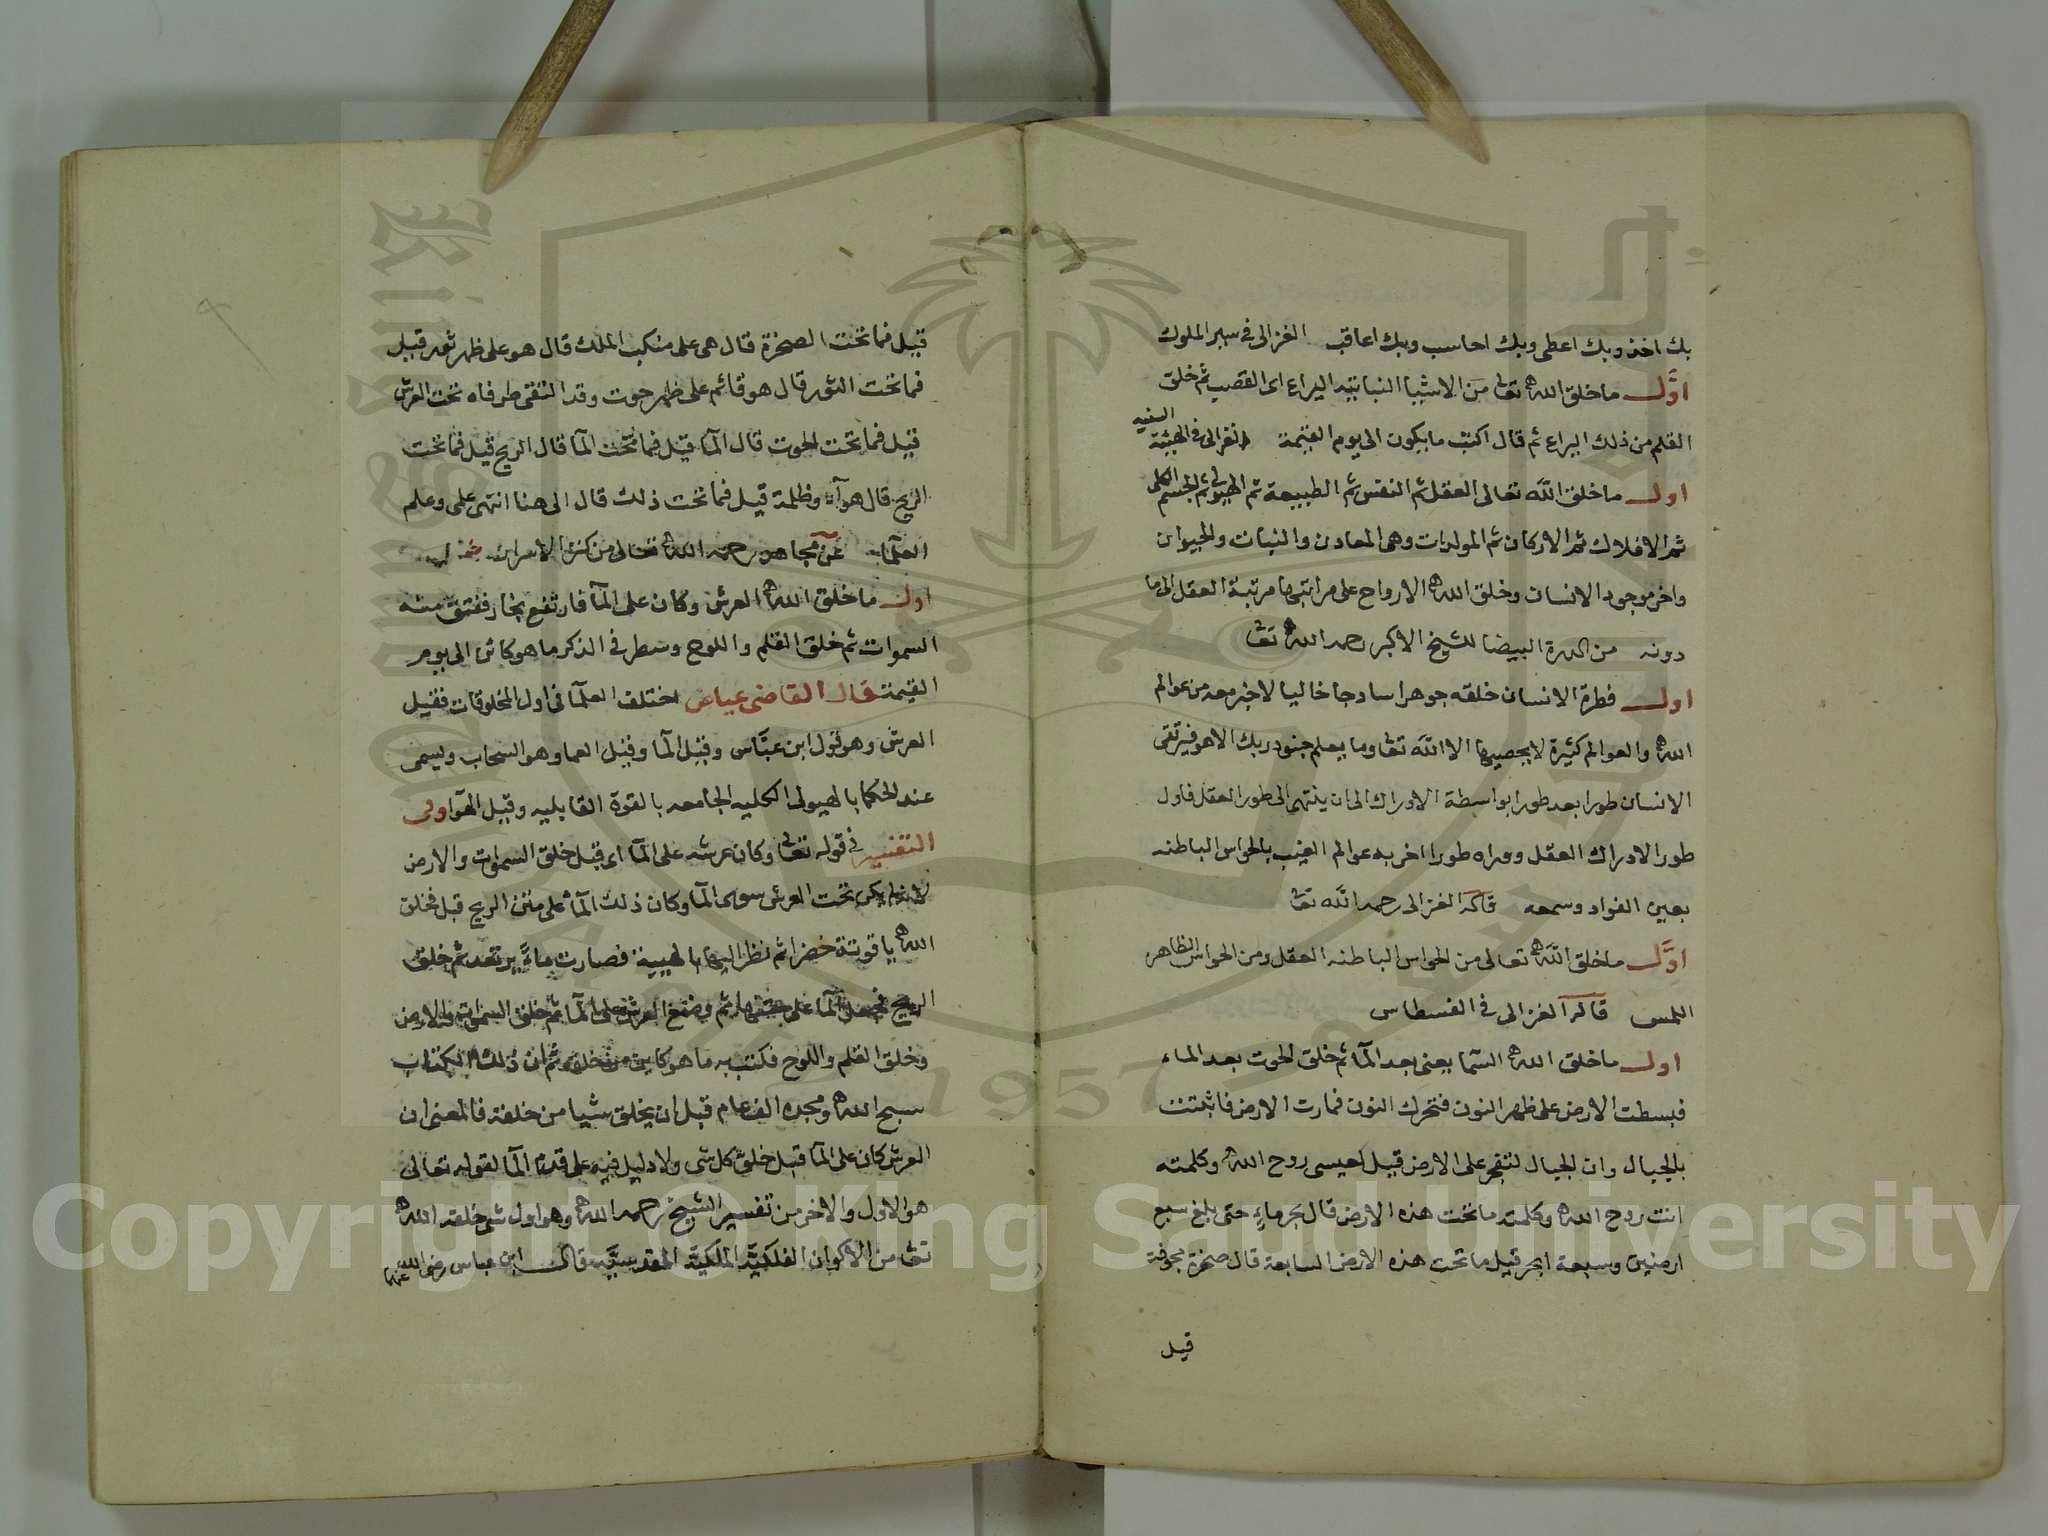 بك اخذ وبك اعطى وبك احاسب وبك اعاقب الغزالى فى سير الملوك
اول ما خلق الله تعا من الاشيا النباتيه اليراع اى القصب ثم خلق
القلم من ذلك اليراع ثم قال اكتب ما يكون الى يوم القيمة الغزالى فى الهيئة السنيه
اول ما خلق الله تعالى العقل ثم النفس ثم الطبيعة ثم الهيولى ثم الجسم الكلى
ثم الافلاك ثم الاركان ثم المولدات وهى المعادن والنبات والحيوان
واخر موجود الانسان وخلق الله الارواح على مراتبها مرتبة العقل الى ما
دونه من الدرة البيضا للشيخ الاكبر رحمه الله تعا
اول فطرة الانسان خلقه جوهرا ساذجا خاليا لا خبر معه من عوالم
الله والعوالم كثيرة لا يحصيها الا الله تعا وما يعلم جنود ربك الا هو فيترقى
الانسان طورا بعد طور ابواسطة الادراك الى ان ينتهى الى طور العقل فاول
طور الادراك العقل ووراه طورا اخر به عوالم الغيب بالحواس الباطنه
بعين الفواد وسمعه قاله الغزالى رحمه الله تعا
اول ما خلق الله تعالى من الحواس الباطنه العقل ومن الحواس الظاهره
اللمس قاله الغزالى فى القسطاس
اول ما خلق الله السما يعنى بعد الما ثم خلق الحوت بعد الماء
فبسطت الارض على ظهر النون فتحرك النون فمارت الارض فاثبتت
بالجبال وان الجبال لتفخر على الارض قيل لعيسى روح الله وكلمته
انت روح الله وكلمته ما تحت هذه الارض قال بحر ماء حتى بلغ سبع
ارضين وسبعة ابحر قيل ما تحت هذه الارض السابعة قال صخرة مجوفة
قيل
قيل فما تحت الصخرة قال هى على منكب الملك قال هو على ظهر ثور قيل
فما تحت الثور قال هو قائم على ظهر حوت وقد التقى طرفاه تحت العرش
قيل فما تحت الحوت قال الما قيل فما تحت الما قال الريح قيل فما تحت
الريح قال هوآء وظلمة قيل فما تحت ذلك قال الى هنا انتهى علمى وعلم
العلما عن مجاهد رحمه الله تعالى من كنز الاسرار
اول ما خلق الله العرش وكان على الما فارتفع بخار ففتق منه
السموات ثم خلق القلم واللوح وسطر فى الذكر ما هو كائن الى يوم
القيمة قال القاضى عياض اختلف العلما فى اول المخلوقات فقيل
العرش وهو قول ابن عباس وقيل الما وقيل العما وهو السحاب ويسمى
عند الحكما بالهيولى الكليه الجامعه بالقوة القابليه وقيل الهوآ وفى
التفسير فى قوله تعا وكان عرشه على الما اى قبل خلق السموات والارض
لانه لم يكن تحت العرش سوى الما وكان ذلك الما على متن الريح قيل فخلق
الله ياقوتة خضرا ثم نظر اليها بالهيبة فصارت ماء يرتعد ثم خلق
الريح فجعل الما على متنها ثم وضع العرش على الما ثم خلق السموات والارض
وخلق القلم واللوح فكتب به ما هو كاين من خلقه ثم ان ذلك الكتاب
سبح الله ومجده الف عام قبل ان يخلق شيا من خلقه فالمعنى ان
العرش كان على الما قبل خلق كل شى ولا دليل فيه على قدم الما لقوله تعالى
هو الاول والاخر من تفسير الشيخ رحمه الله وهو اول شى خلقه الله
تعا من الاكوان الفلكية الملكية المقدسية قال ابن عباس رضى الله عنهما
Copyright © King Saud University
1957